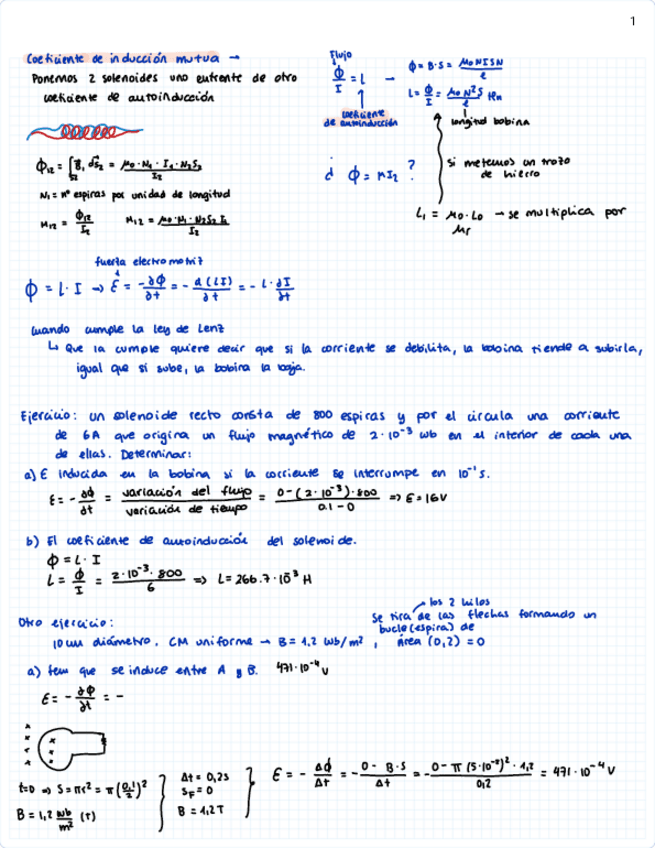 1
Coeficiente de inducción mutua →
Ponemos 2 solenoides uno enfrente de otro
coeficiente de autoinducción
Flujo
Φ/I = L →
coeficiente
de autoinducción
Φ = B·S = μ₀NISN/ℓ
L = Φ/I = μ₀N²S/ℓ
longitud bobina
Φ₁₂ = ∫B₁ dS₂ = μ₀·N₁·I₁·N₂S₂/I₂
N₁ = nº espiras por unidad de longitud
M₁₂ = Φ₁₂/I₂ M₁₂ = μ₀·N₁·N₂S₂ I₁/I₂
¿ Φ = MI₂ ?
si metemos un trozo
de hierro
L₁ = μ₀·L₀ → se multiplica por
μr
fuerza electromotriz
Φ = L·I → ε = -∂Φ/∂t = - d(LI)/∂t = - L·∂I/∂t
Cuando cumple la ley de Lenz
↳ Que la cumple quiere decir que si la corriente se debilita, la bobina tiende a subirla,
igual que si sube, la bobina la baja.
Ejercicio: Un solenoide recto consta de 800 espiras y por el circula una corriente
de 6A que origina un flujo magnético de 2·10⁻³ wb en el interior de cada una
de ellas. Determinar:
a) ε Inducida en la bobina si la corriente se interrumpe en 10⁻¹s.
ε = - ∂Φ/∂t = variación del flujo/variación de tiempo = 0-(2·10⁻³)·800/0.1-0 => ε = 16V
b) El coeficiente de autoinducción del solenoide.
Φ = L·I
L = Φ/I = 2·10⁻³·800/6 => L = 266.7·10⁻³ H
Otro ejercicio:
→ los 2 hilos
se tira de las flechas formando un
bucle (espira) de
10 cm diámetro. CM uniforme → B = 1,2 wb/m², área (0,2) = 0
a) fem que se induce entre A y B. 471·10⁻⁴ V
ε = - ∂Φ/∂t = -
t=0 => S = πr² = π(0,1/2)²
B = 1,2 wb/m² (T)
Δt = 0,2s
S_F = 0
B = 1,2T
ε = - ΔΦ/Δt = - 0-B·S/Δt = - 0-π(5·10⁻²)²·1,2/0,2 = 471·10⁻⁴ V